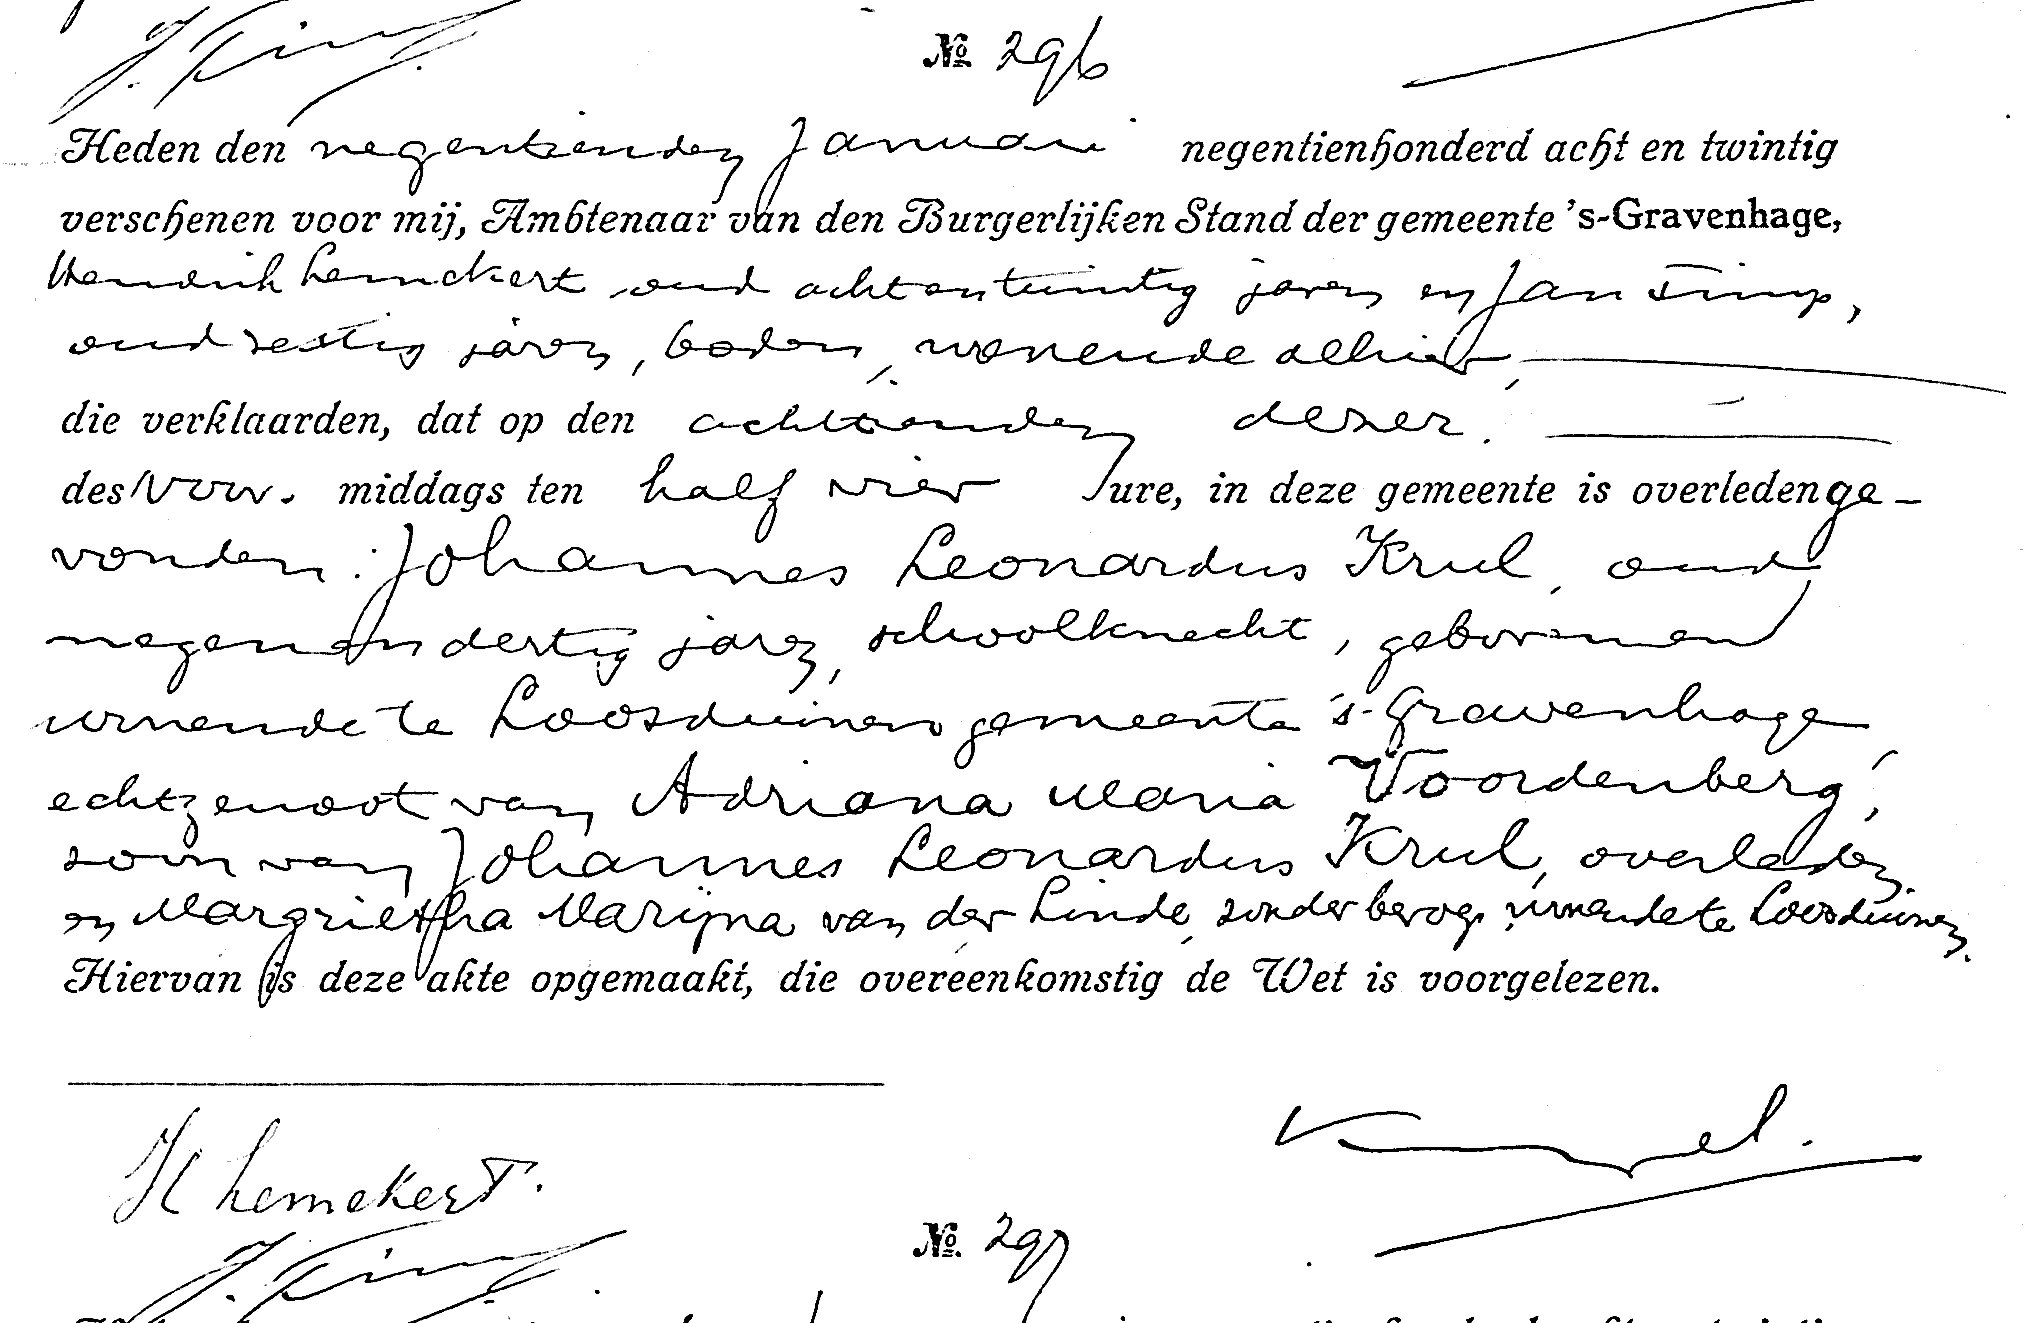 J. Timp.
№ 296
Heden den negentienden Januari negentienhonderd acht en twintig
verschenen voor mij, Ambtenaar van den Burgerlijken Stand der gemeente 's-Gravenhage,
Hendrik Lemckert oud achtentwintig jaren en Jan Timp,
oud zestig jaren, boden, wonende alhier,
die verklaarden, dat op den achttienden dezer.
des Voor. middags ten half vier ure, in deze gemeente is overleden ge-
vonden: Johannes Leonardus Krul, oud
negenendertig jaren, schoolknecht, geboren en
wonende te Loosduinen gemeente 's-Gravenhage,
echtgenoot van Adriana Maria Voordenberg,
zoon van Johannes Leonardus Krul, overleden,
en Margrietha Marijna van der Linde, zonder beroep, wonende te Loosduinen.
Hiervan is deze akte opgemaakt, die overeenkomstig de Wet is voorgelezen.
H Lemckert.
J. Timp.
№ 297